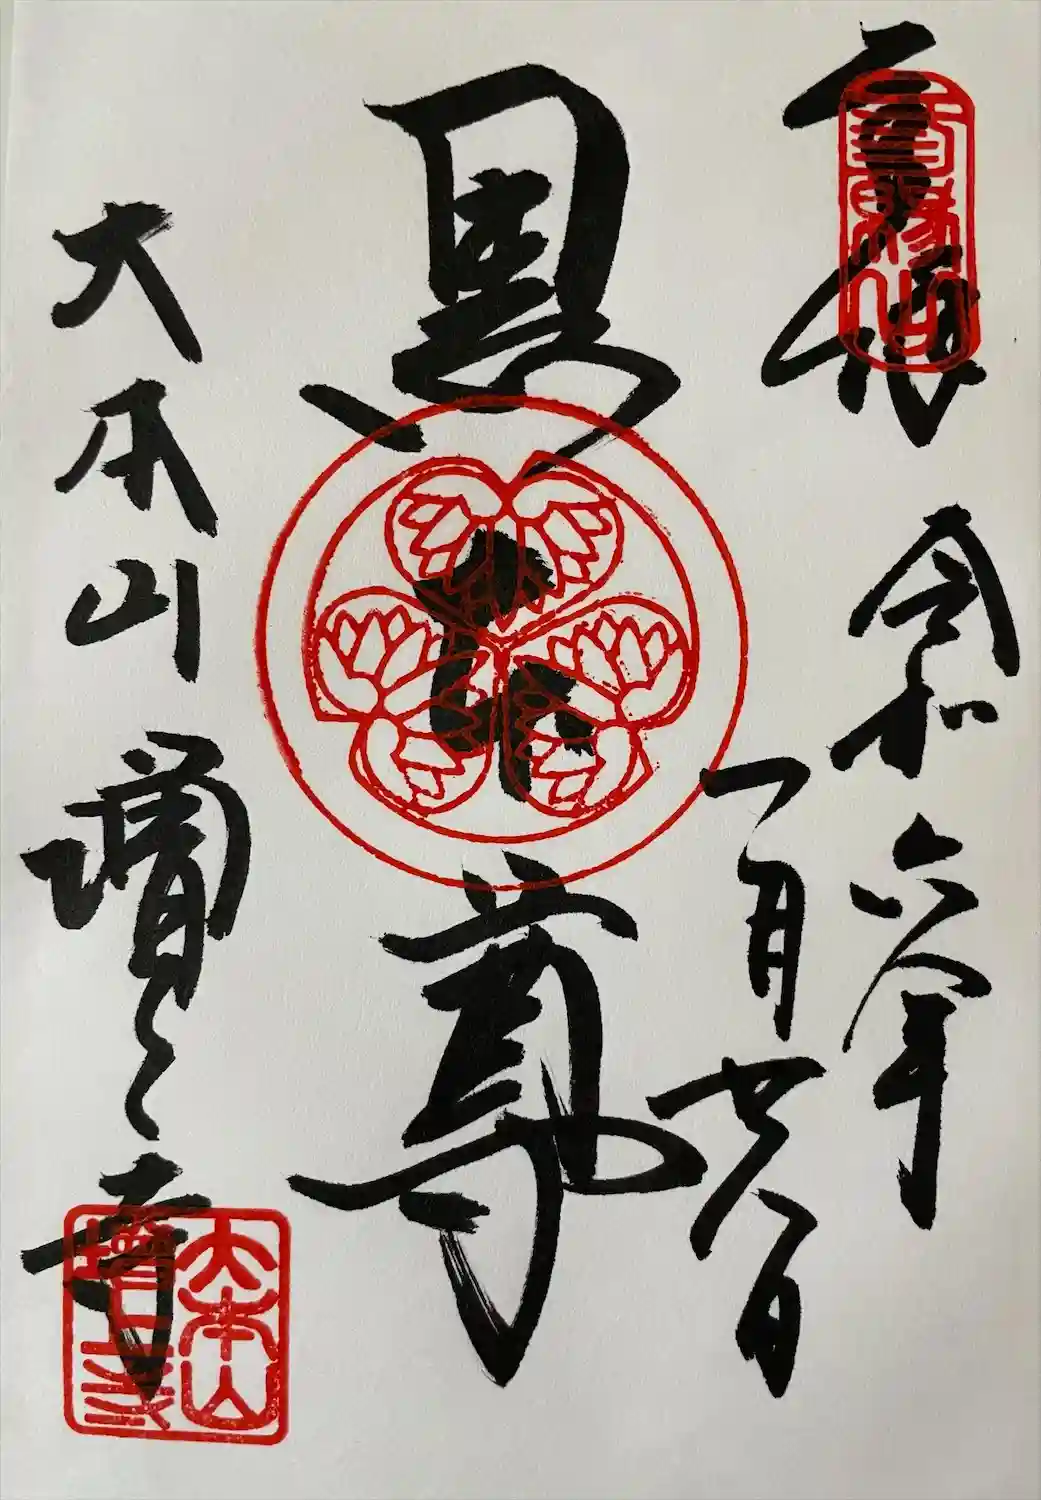 奉拝
令和六年
一月廿八日
黒本尊
大本山 増上寺
大本山
増上寺